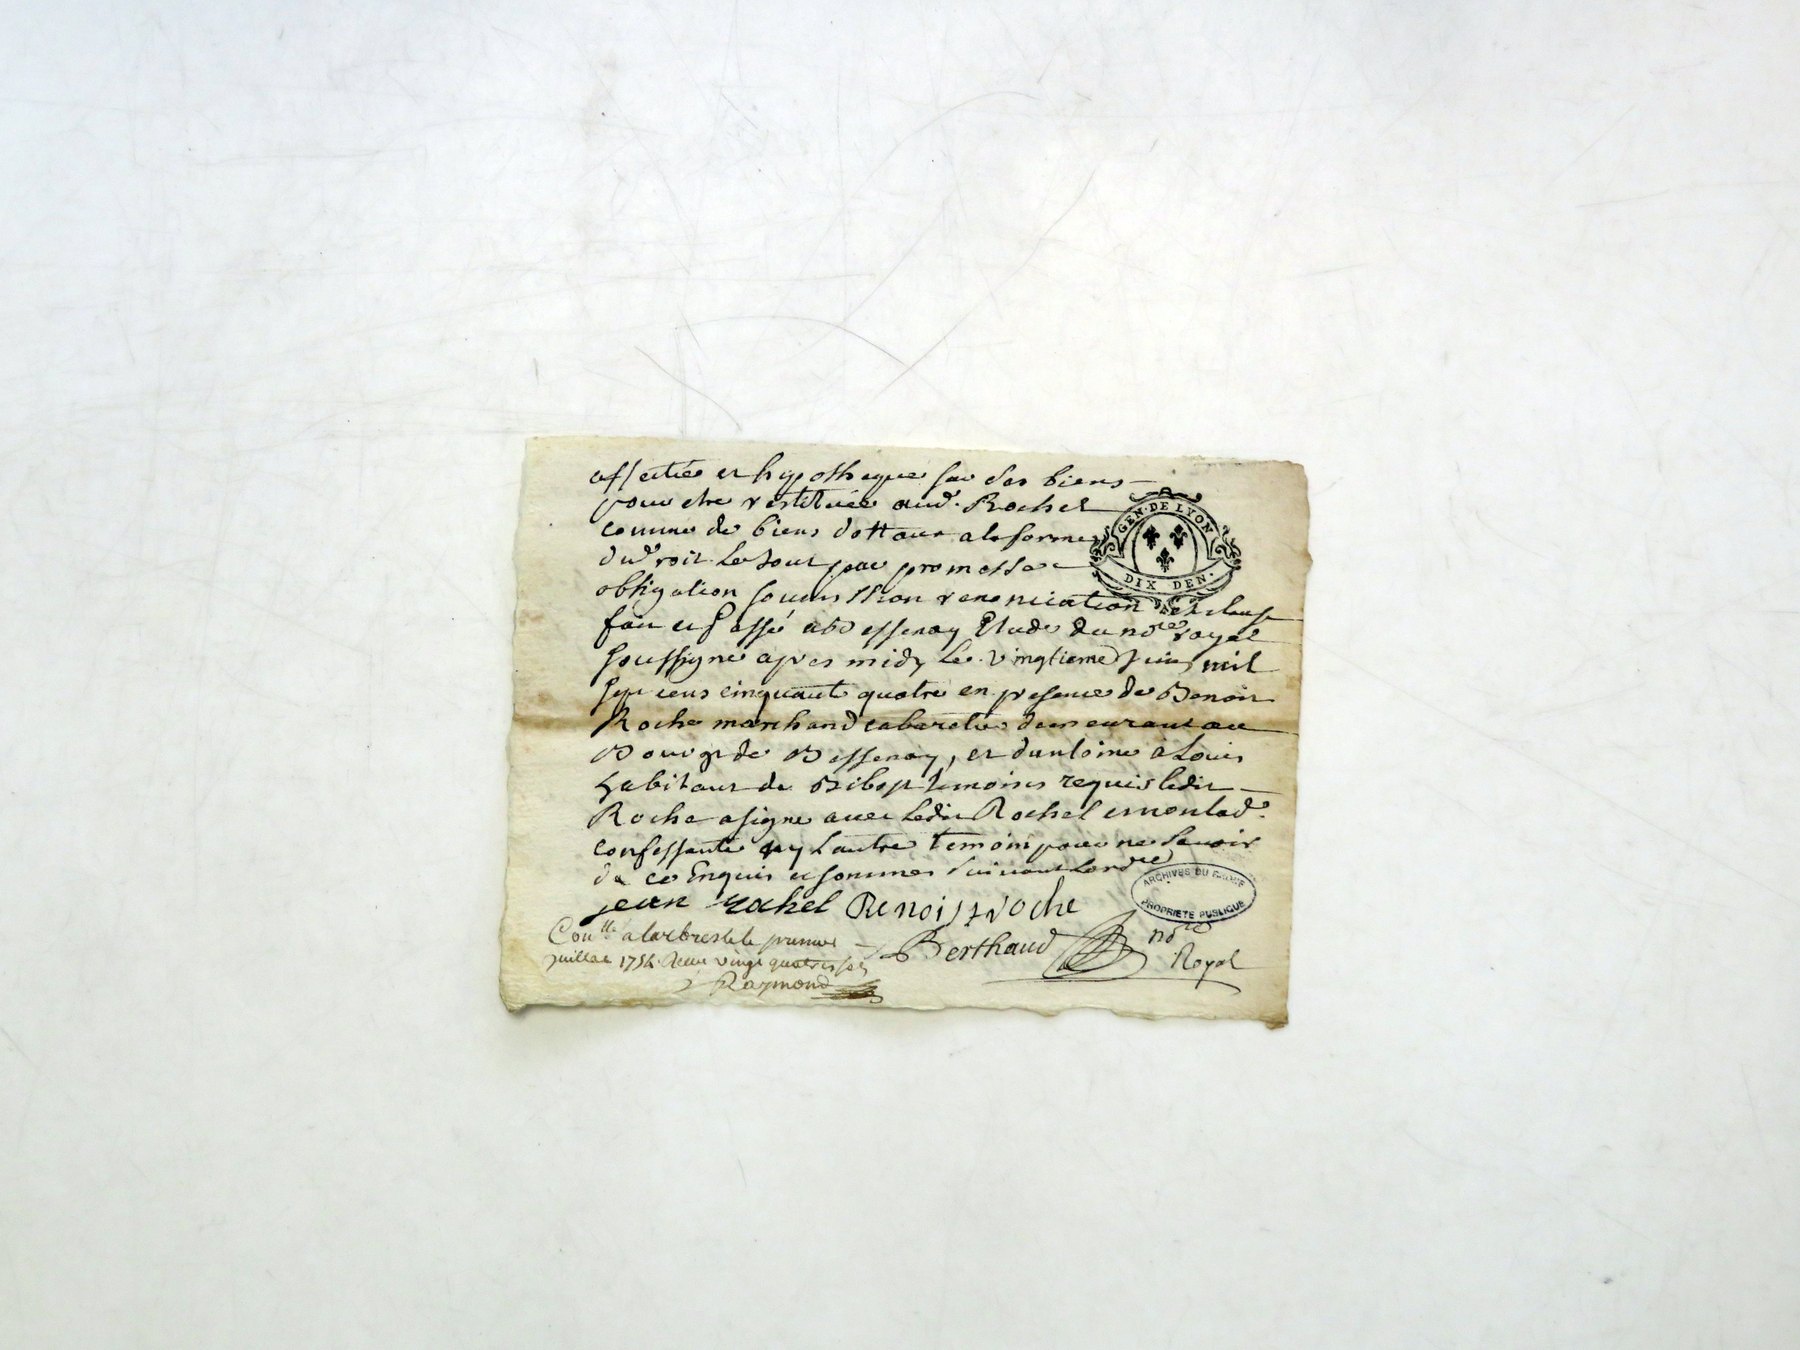 affectée et hypothequé sur ses biens
pour etre restituée aud. Rochel
comme de biens dottaux a la forme
GEN · DE LYON
DIX DEN.
du droit le tout par promesse
obligation soumission renonciation et clause
fait et passé a Bessenay Etude du nore royal
soussigné apres midy le vingtieme juin mil
sept cens cinquante quatre en presence de Benoit
Roche marchand cabaretier demeurant au
Bourg de Bessenay, et dantoine
habitant de Bibost temoins requis ledit
Roche a signé avec ledit Rochel et non lad.
confessante ny lautre temoin pour ne scavoir
de ce Enquis et sommes suivant lordre
ARCHIVES DU RHONE
PROPRIETE PUBLIQUE
jean rochel Benoist roche
Conlle a larbresle le premier
juillet 1754. Receu vingt quatre sols
Raymond
Berthaud nore
Royal